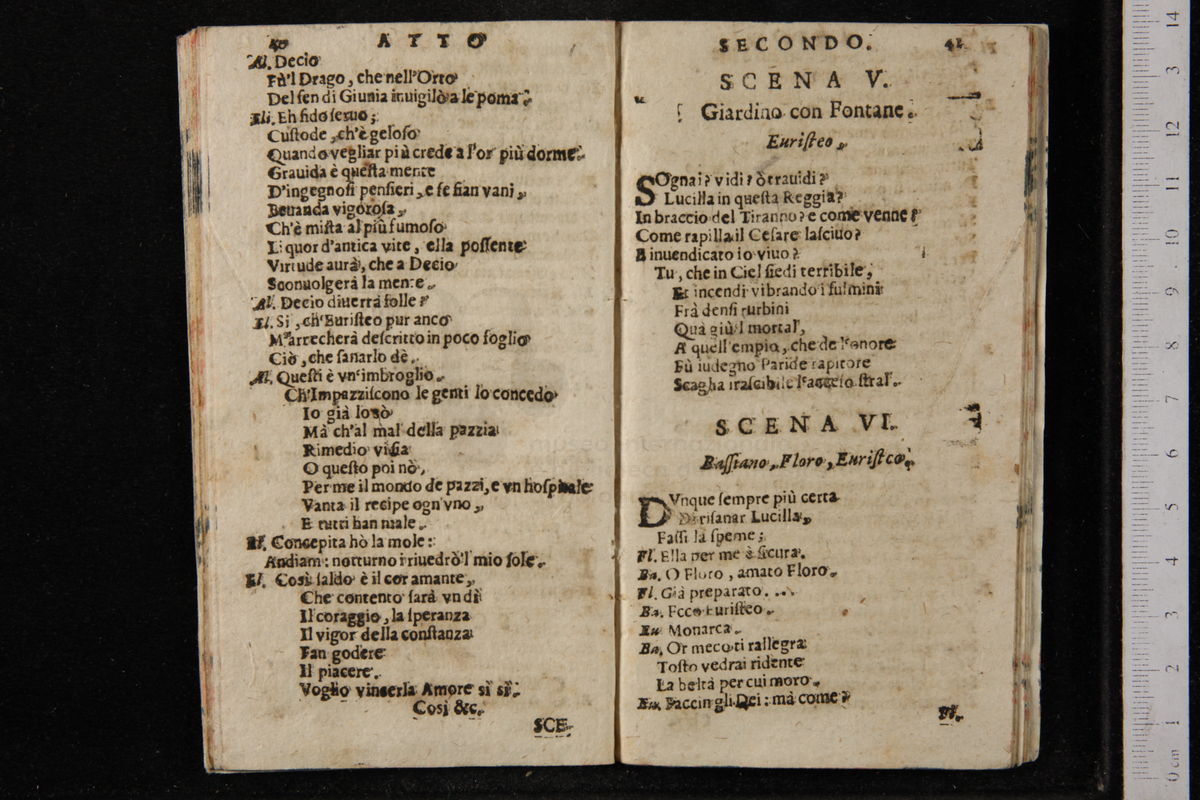 40 ATTO
Al. Decio
Fù'l Drago, che nell'Orto
Del sen di Giunia inuigilò a le poma.
Eli. Eh fido seruo;
Custode, ch'è geloso
Quando vegliar più crede a l'or più dorme.
Grauida è questa mente
D'ingegnosi pensieri, e se fian vani,
Beuanda vigorosa,
Ch'è mista al più fumoso
Liquor d'antica vite, ella possente
Virtude aurà, che a Decio
Sconuolgerà la mente.
Al. Decio diuerrà folle?
El. Si, ch'Euristeo pur anco
M'arrecherà descritto in poco foglio
Ciò, che sanarlo dè.
Al. Questi è vn'imbroglio.
Ch'Impazziscono le genti lo concedo
Io già lo sò
Mà ch'al mal della pazzia
Rimedio vi sia
O questo poi nò,
Per me il mondo de pazzi, e vn hospitale
Vanta il recipe ogn'vno,
E tutti han male.
El. Concepita hò la mole:
Andiam: notturno i riuedrò'l mio sole.
El. Così saldo è il cor amante,
Che contento sarà vn dì
Il coraggio, la speranza
Il vigor della constanza
Fan godere
Il piacere.
Voglio vincerla Amore sì sì.
Così &c.
SCE-
SECONDO. 41
SCENA V.
Giardino con Fontane.
Euristeo.
SOgnai? vidi? ò trauidi?
Lucilla in questa Reggia?
In braccio del Tiranno? e come venne?
Come rapilla il Cesare lasciuo?
E inuendicato io viuo?
Tu, che in Ciel siedi terribile,
Et incendi vibrando i fulmini
Frà densi turbini
Quà giù'l mortal,
A quell'empio, che de l'onore
Fù indegno Paride rapitore
Scaglia irascibile l'acceso stral.
SCENA VI.
Bassiano, Floro, Euristeo.
DVnque sempre più certa
Di risanar Lucilla,
Fassi la speme;
Fl. Ella per me è sicura.
Ba. O Floro, amato Floro.
Fl. Già preparato...
Ba. Ecco Euristeo.
Eu. Monarca.
Ba. Or meco ti rallegra
Tosto vedrai ridente
La beltà per cui moro.
Eu. Faccin gli Dei: mà come?
Fl.